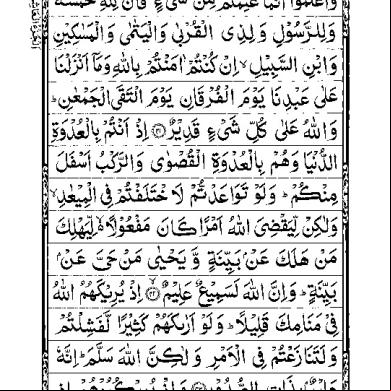 وَاعْلَمُوْٓا اَنَّمَا غَنِمْتُمْ مِّنْ شَیْءٍ فَاَنَّ لِلّٰهِ خُمُسَهٗ
وَلِلرَّسُوْلِ وَلِذِی الْقُرْبٰی وَالْیَتٰمٰی وَالْمَسٰكِیْنِ
وَابْنِ السَّبِیْلِ ۙ اِنْ كُنْتُمْ اٰمَنْتُمْ بِاللّٰهِ وَمَاۤ اَنْزَلْنَا
عَلٰی عَبْدِنَا یَوْمَ الْفُرْقَانِ یَوْمَ الْتَقَی الْجَمْعٰنِ ؕ
وَاللّٰهُ عَلٰی كُلِّ شَیْءٍ قَدِیْرٌ ﴿۴۱﴾ اِذْ اَنْتُمْ بِالْعُدْوَةِ
الدُّنْیَا وَهُمْ بِالْعُدْوَةِ الْقُصْوٰی وَالرَّكْبُ اَسْفَلَ
مِنْكُمْ ؕ وَلَوْ تَوَاعَدْتُّمْ لَاخْتَلَفْتُمْ فِی الْمِیْعٰدِ ۙ
وَلٰكِنْ لِّیَقْضِیَ اللّٰهُ اَمْرًا كَانَ مَفْعُوْلًا ۙ لِّیَهْلِكَ
مَنْ هَلَكَ عَنْۢ بَیِّنَةٍ وَّیَحْیٰی مَنْ حَیَّ عَنْۢ
بَیِّنَةٍ ؕ وَاِنَّ اللّٰهَ لَسَمِیْعٌ عَلِیْمٌ ﴿۴۲﴾ اِذْ یُرِیْكَهُمُ اللّٰهُ
فِیْ مَنَامِكَ قَلِیْلًا ؕ وَلَوْ اَرٰىكَهُمْ كَثِیْرًا لَّفَشِلْتُمْ
وَلَتَنَازَعْتُمْ فِی الْاَمْرِ وَلٰكِنَّ اللّٰهَ سَلَّمَ ؕ اِنَّهٗ